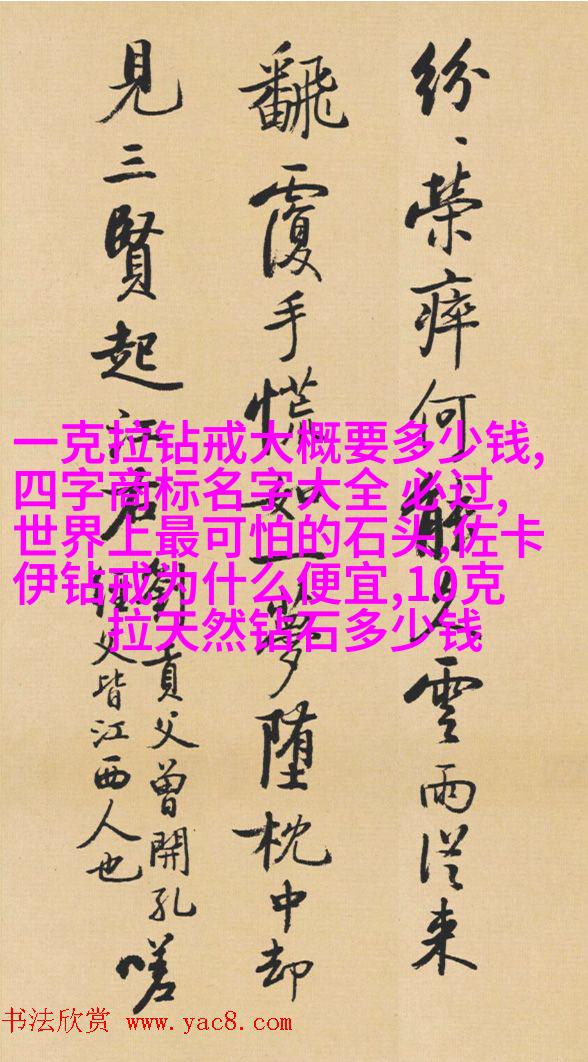 紛、榮瘁何能久雲雨從来
飜覆手慌如一夢堕枕中却
見三賢起江右
劉貢父曾開孔
經父皆江西人也
嗟
一克拉钻戒大概要多少钱,
四字商标名字大全 必过,
世界上最可怕的石头,佐卡
伊钻戒为什么便宜,10克
拉天然钻石多少钱
书法欣赏 www.yac8.com